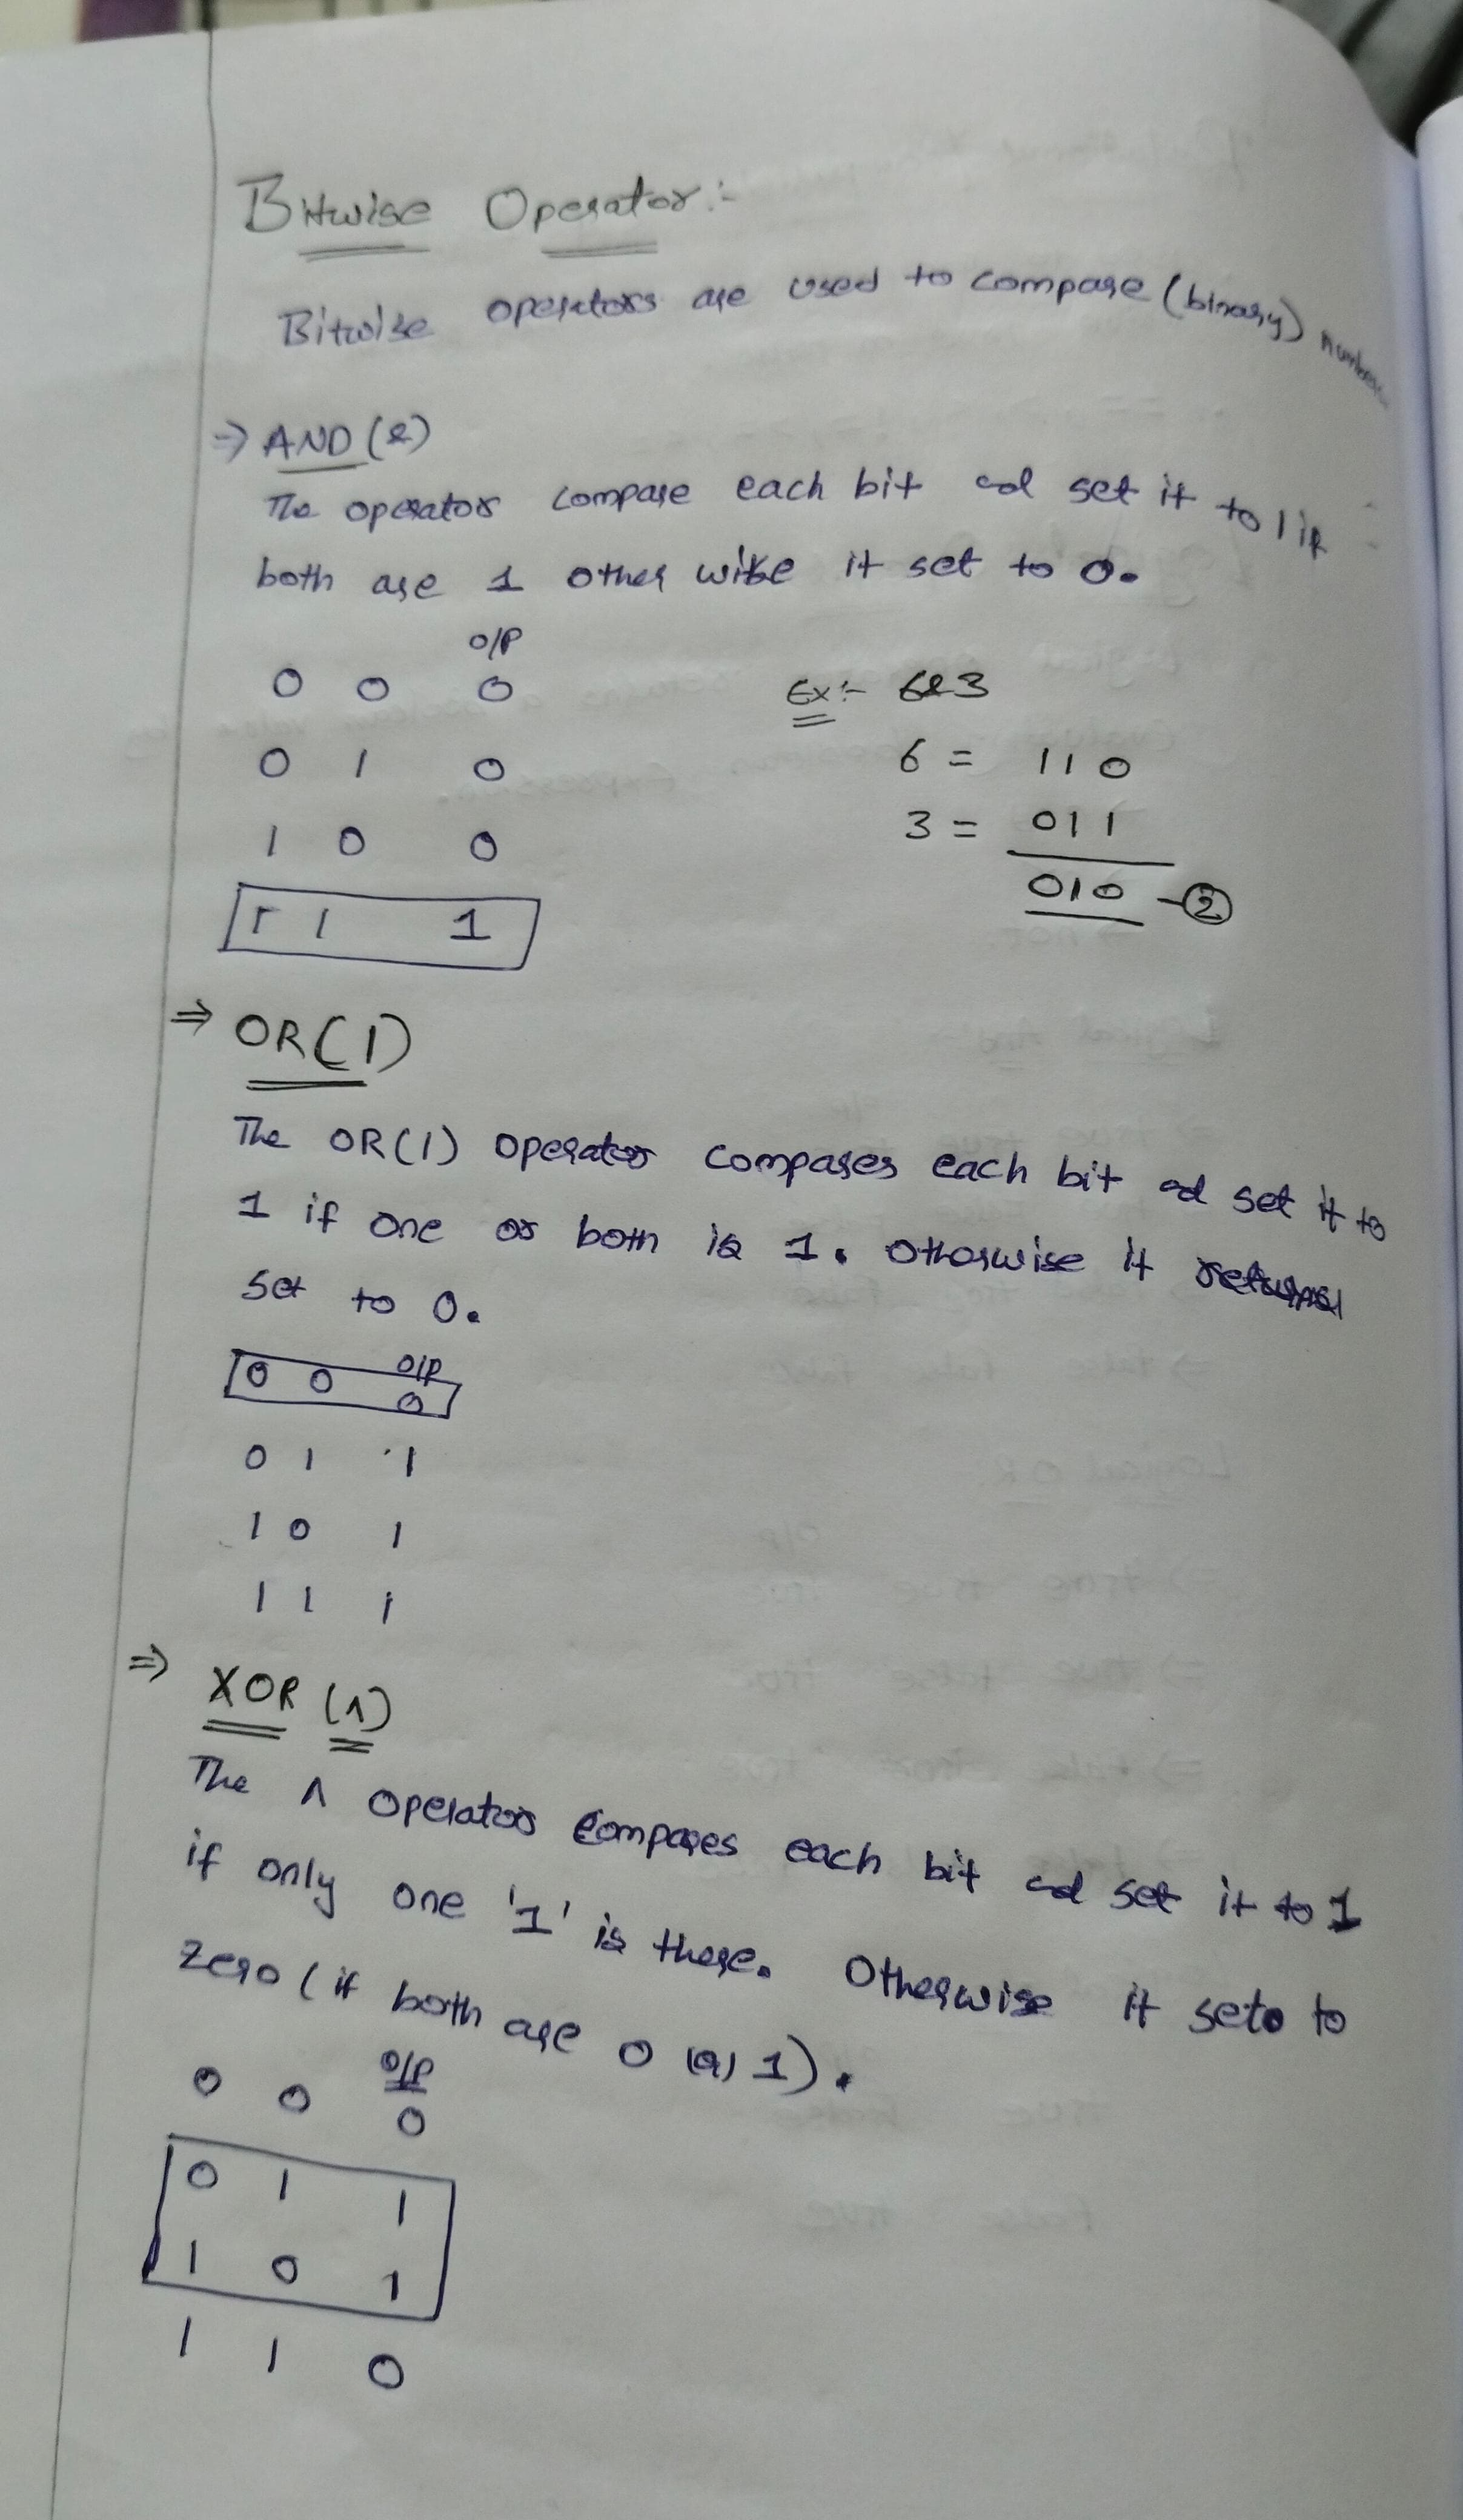 Bitwise Operator:-
Bitwise operators are used to compare (binary) numbers
⇒ AND (&)
The operator compare each bit and set it to 1 if
both are 1 other wise it set to 0.
O/P
0 0 0
0 1 0
1 0 0
1 1 1
Ex:- 6&3
6 = 110
3 = 011
010 - 2
⇒ OR(|)
The OR(|) operator compares each bit and set it to
1 if one or both is 1. Otherwise it returns
set to 0.
O/P
0 0 0
0 1 1
1 0 1
1 1 1
⇒ XOR (^)
The ^ operator compares each bit and set it to 1
if only one '1' is there. Otherwise it sets to
zero (if both are 0 (or) 1).
O/P
0 0 0
0 1 1
1 0 1
1 1 0